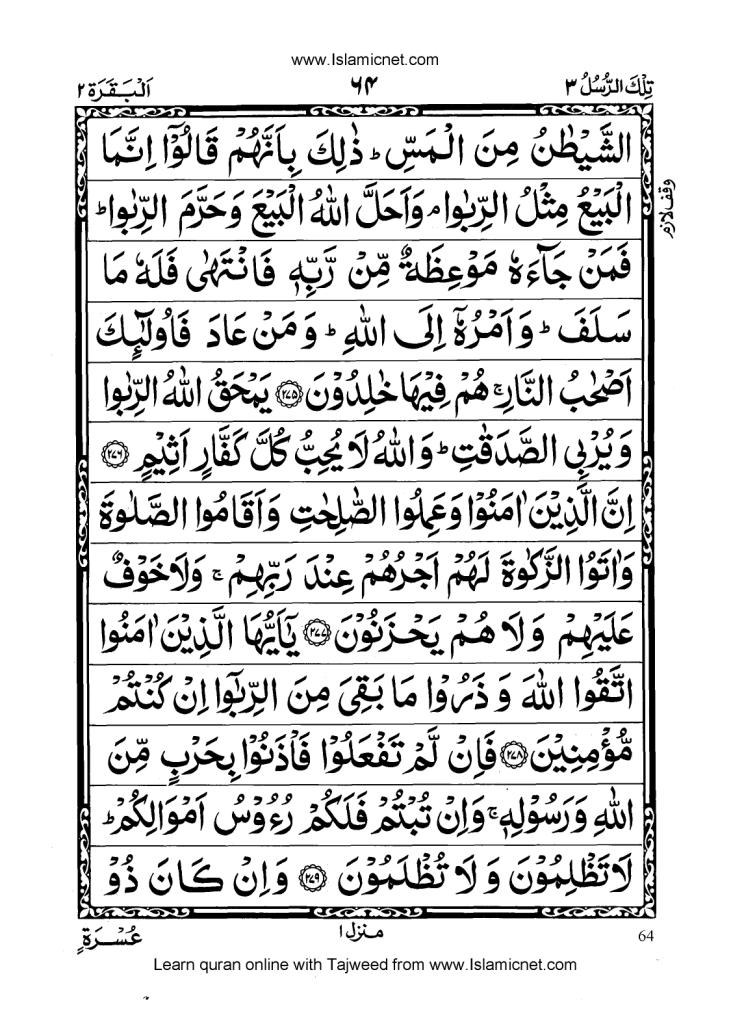 www.Islamicnet.com
تِلْكَ الرُّسُلُ ٣ ٦٤ اَلْبَقَرَة ٢
الشَّيْطٰنُ مِنَ الْمَسِّ ؕ ذٰلِكَ بِاَنَّهُمْ قَالُوْۤا اِنَّمَا
الْبَيْعُ مِثْلُ الرِّبٰوا ۘ وَاَحَلَّ اللّٰهُ الْبَيْعَ وَحَرَّمَ الرِّبٰوا ؕ
وقف لازم
فَمَنْ جَآءَهٗ مَوْعِظَةٌ مِّنْ رَّبِّهٖ فَانْتَهٰى فَلَهٗ مَا
سَلَفَ ؕ وَاَمْرُهٗۤ اِلَى اللّٰهِ ؕ وَمَنْ عَادَ فَاُولٰٓئِكَ
اَصْحٰبُ النَّارِ ۚ هُمْ فِيْهَا خٰلِدُوْنَ ﴿٢٧٥﴾ يَمْحَقُ اللّٰهُ الرِّبٰوا
وَيُرْبِى الصَّدَقٰتِ ؕ وَاللّٰهُ لَا يُحِبُّ كُلَّ كَفَّارٍ اَثِيْمٍ ﴿٢٧٦﴾
اِنَّ الَّذِيْنَ اٰمَنُوْا وَعَمِلُوا الصّٰلِحٰتِ وَاَقَامُوا الصَّلٰوةَ
وَاٰتَوُا الزَّكٰوةَ لَهُمْ اَجْرُهُمْ عِنْدَ رَبِّهِمْ ۚ وَلَا خَوْفٌ
عَلَيْهِمْ وَلَا هُمْ يَحْزَنُوْنَ ﴿٢٧٧﴾ يٰۤاَيُّهَا الَّذِيْنَ اٰمَنُوا
اتَّقُوا اللّٰهَ وَ ذَرُوْا مَا بَقِىَ مِنَ الرِّبٰۤوا اِنْ كُنْتُمْ
مُّؤْمِنِيْنَ ﴿٢٧٨﴾ فَاِنْ لَّمْ تَفْعَلُوْا فَاْذَنُوْا بِحَرْبٍ مِّنَ
اللّٰهِ وَرَسُوْلِهٖ ۚ وَاِنْ تُبْتُمْ فَلَكُمْ رُءُوْسُ اَمْوَالِكُمْ ؕ
لَا تَظْلِمُوْنَ وَلَا تُظْلَمُوْنَ ﴿٢٧٩﴾ وَاِنْ كَانَ ذُوْ
عُسْرَةٍ منزل ١ 64
Learn quran online with Tajweed from www.Islamicnet.com